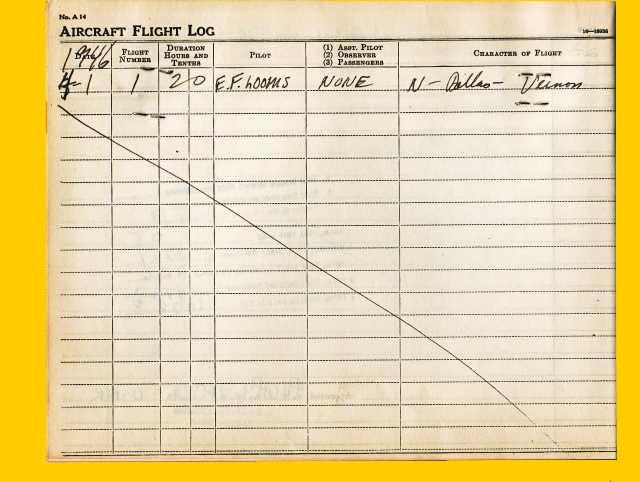 No. A 14
AIRCRAFT FLIGHT LOG
DATE FLIGHT NUMBER DURATION HOURS AND TENTHS PILOT (1) ASST. PILOT (2) OBSERVER (3) PASSENGERS CHARACTER OF FLIGHT
1946
4-1 1 20 E.F. LOOMIS NONE N - Dallas - Vernon